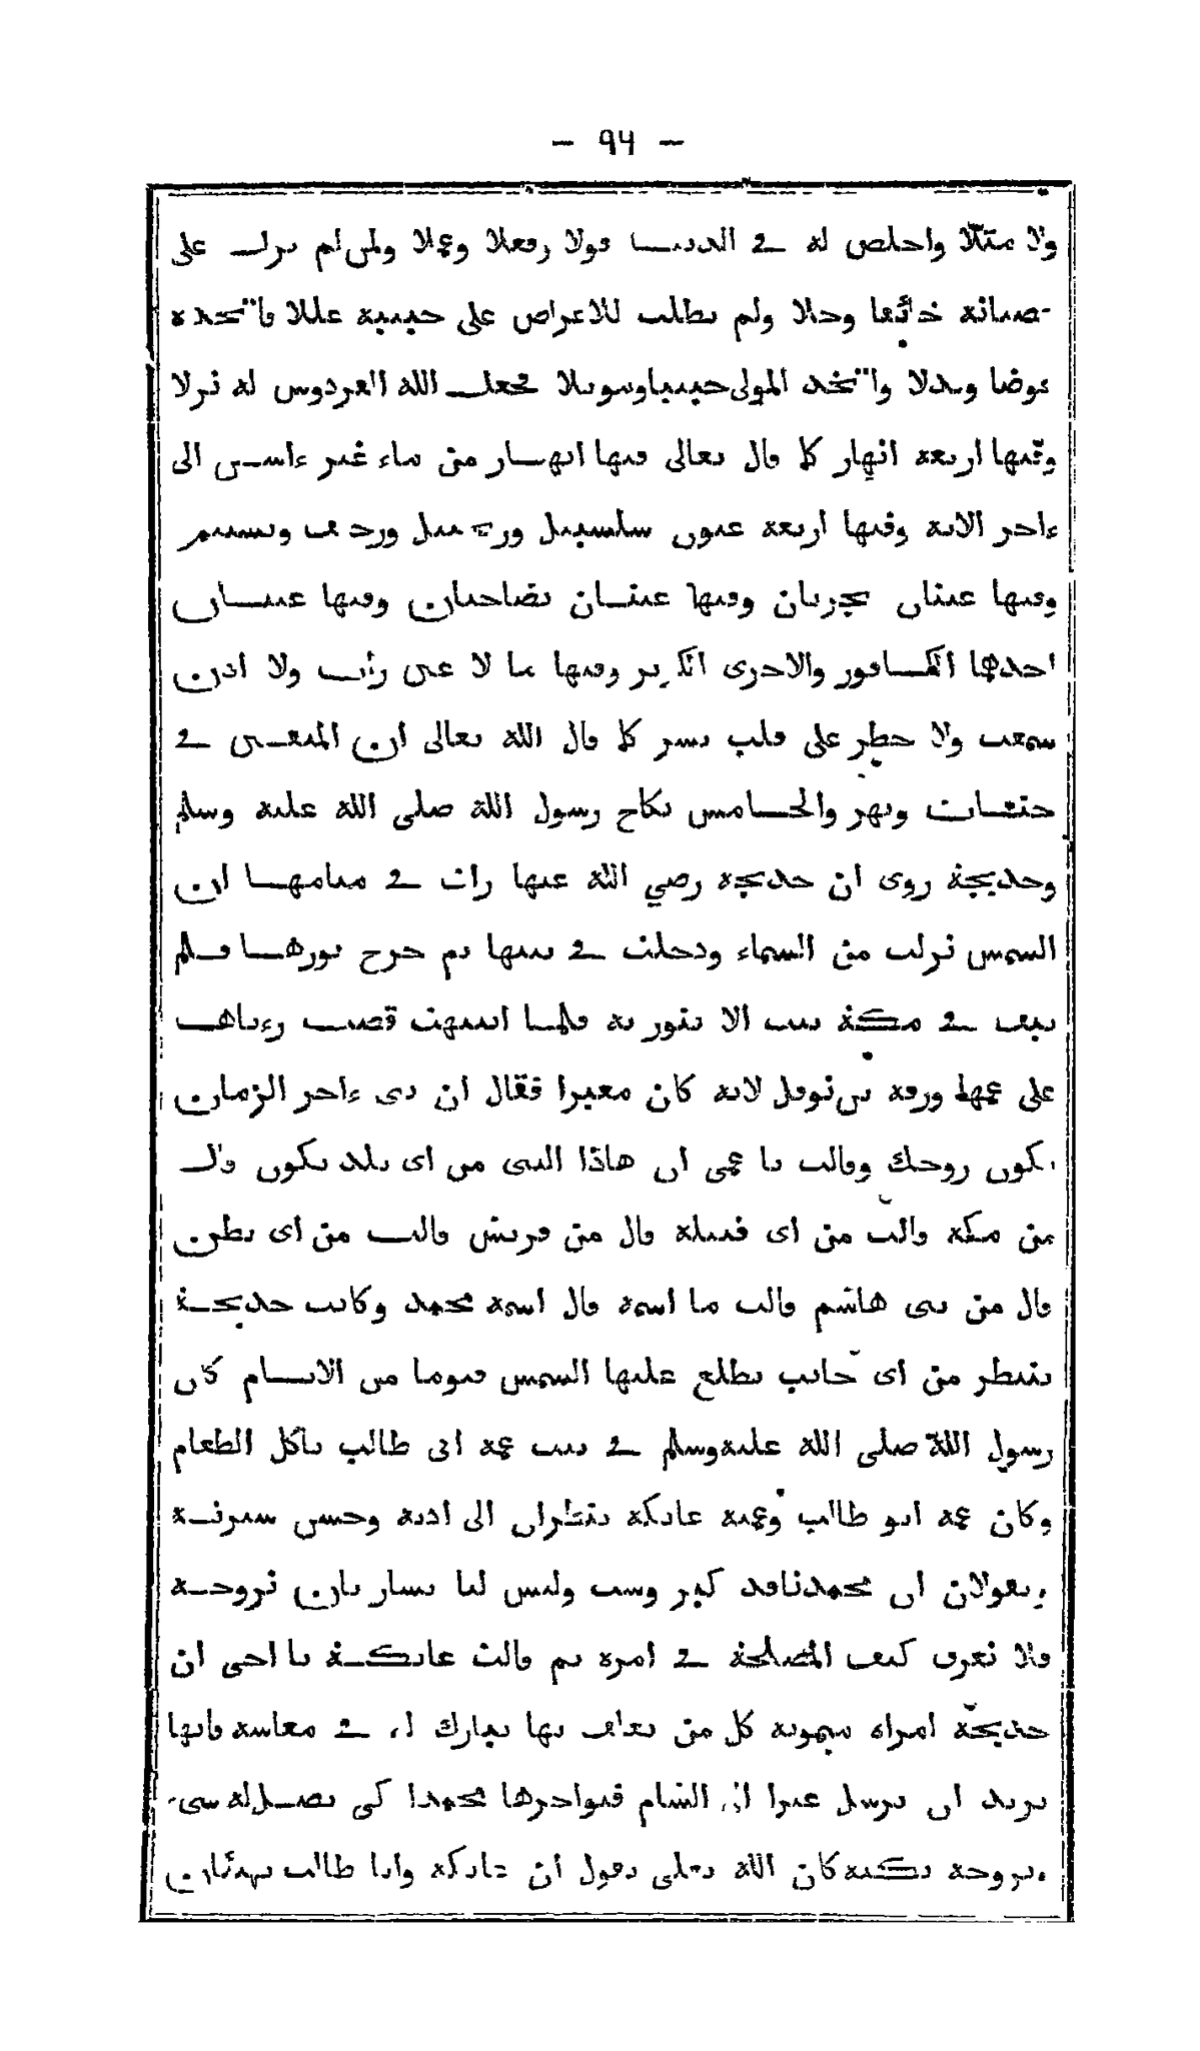 - ٩٤ -
ولا مثلا واخلص له في الدنيا قولا وفعلا وعملا ولمن لم يزل على
عصيانه خائفا وجلا ولم يطلب للاعراض على حبيبه عللا فاتخذه
عوضا وبدلا واتخذ المولى حبيبا وسوءلا فجعل الله الفردوس له نزلا
وفيها اربعة انهار كما قال تعالى فيها انهار من ماء غير ءاسن الى
ءاخر الاية وفيها اربعة عيون سلسبيل وزنجبيل ورحيق وتسنيم
وفيها عينان تجريان وفيها عينان نضاختان وفيها عينان
احدهما الكافور والاخرى الكوثر وفيها ما لا عين رأت ولا اذن
سمعت ولا خطر على قلب بشر كما قال الله تعالى ان المتقين في
جنات ونهر والخامس نكاح رسول الله صلى الله عليه وسلم
وخديجة روى ان خديجة رضي الله عنها رات في منامها ان
الشمس نزلت من السماء ودخلت في بيتها ثم خرج نورها فلم
يبق في مكة بيت الا تنور به فلما انتبهت قصت رءياها
على عمها ورقة بن نوفل لانه كان معبرا فقال ان نبى ءاخر الزمان
يكون زوجك وقالت يا عمى ان هاذا النبى من اى بلد يكون قال
من مكة قالت من اى قبيلة قال من قريش قالت من اى بطن
قال من بنى هاشم قالت ما اسمه قال اسمه محمد وكانت خديجة
تنتظر من اى جانب تطلع عليها الشمس فيوما من الايام كان
رسول الله صلى الله عليه وسلم في بيت عمه ابى طالب ياكل الطعام
وكان عمه ابو طالب وعمته عاتكة ينظران الى ادبه وحسن سيرته
ويقولان ان محمدنا قد كبر وشب وليس لنا يسار بان نزوجه
فلا نعرف كيف المصلحة في امره ثم قالت عاتكة يا اخى ان
خديجة امراة ميمونة كل من تعلق بها يبارك له في معاشه فانها
تريد ان ترسل عيرا الى الشام فنواجرها محمدا كى يصل له شىء
ونزوجه بكسبه كان الله تعلى يقول ان عاتكة وابا طالب يهيئان